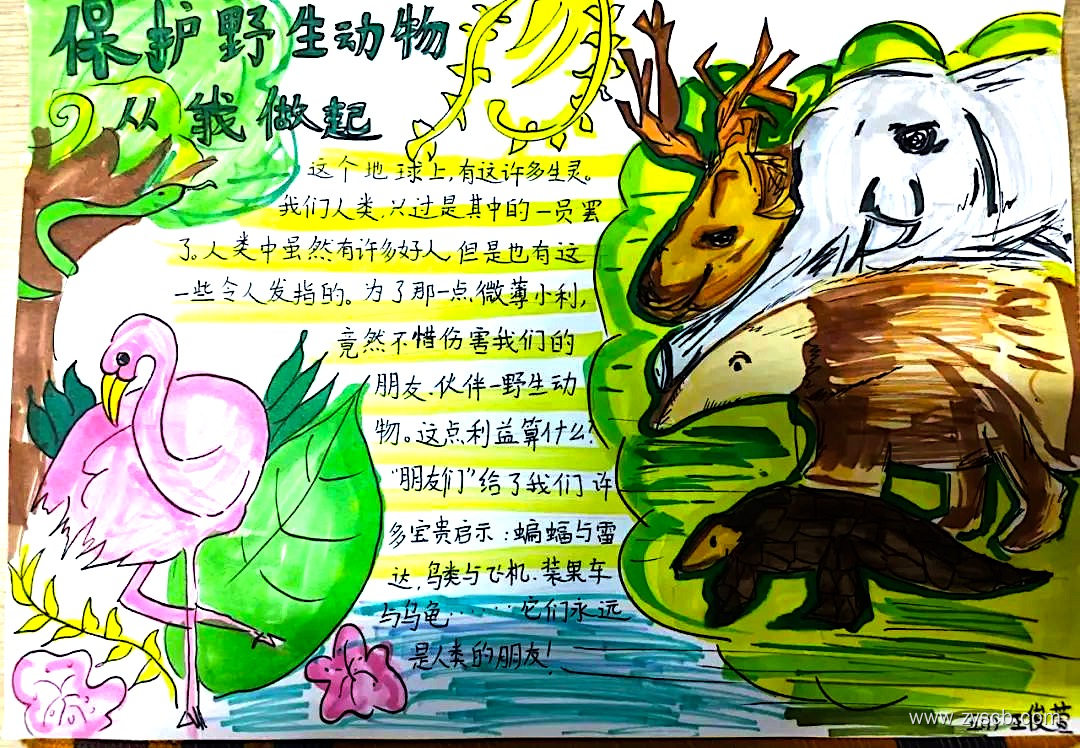 保护野生动物
从我做起
这个地球上,有这许多生灵。
我们人类,只过是其中的一员罢
了。人类中虽然有许多好人,但是也有这
一些令人发指的。为了那一点微薄小利,
竟然不惜伤害我们的
朋友、伙伴—野生动
物。这点利益算什么?
“朋友们”给了我们许
多宝贵启示:蝙蝠与雷
达,鸟类与飞机、装果车
与乌龟······它们永远
是人类的朋友!
俊茜